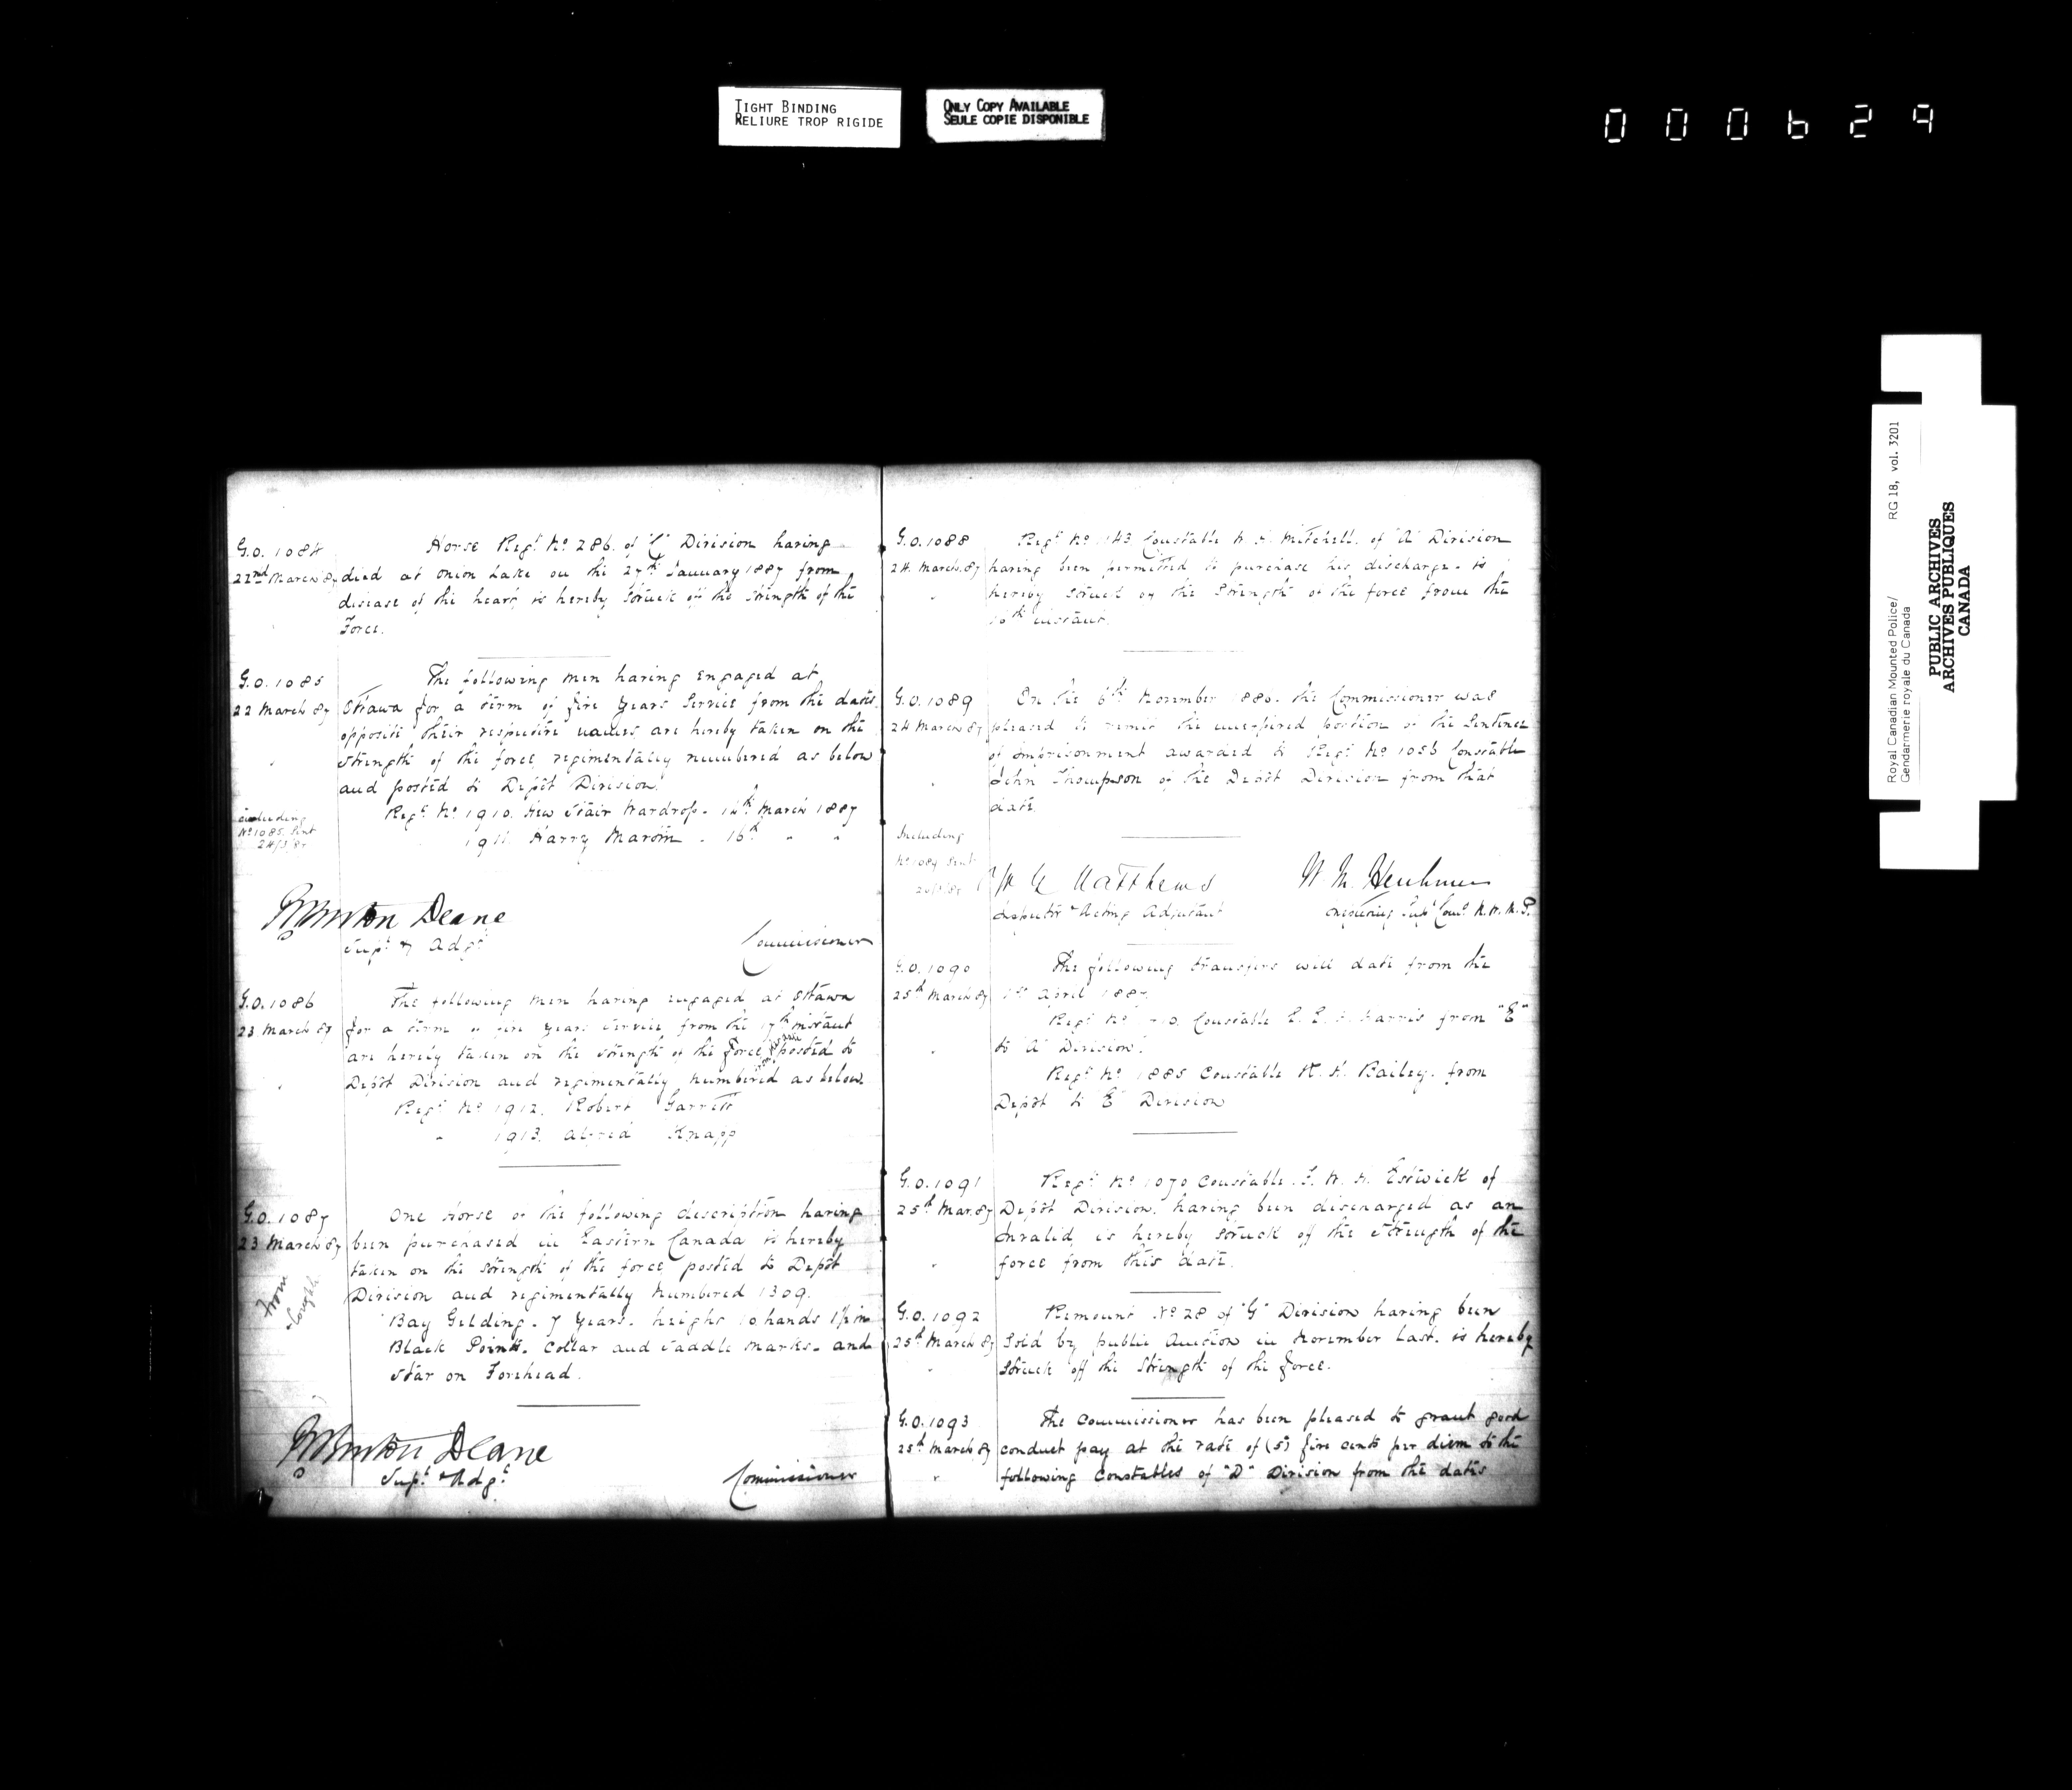 TIGHT BINDING
RELIURE TROP RIGIDE
ONLY COPY AVAILABLE
SEULE COPIE DISPONIBLE
000629
G.O. 1084
22nd March 87
Horse Regt. No. 286. of "C" Division having
died at Onion Lake on the 27th January 1887 from
disease of the heart, is hereby struck off the strength of the
Force.
G.O. 1085
22 March 87
The following men having engaged at
Ottawa for a term of five years service from the dates
opposite their respective names are hereby taken on the
strength of the force regimentally numbered as below
and posted to Depôt Division.
including
No 1085. sent
24/3/87
Regt. No. 1910. Hew Stair Wardrop - 14th March 1887
1911. Harry - 16th " "
Burton Deane
Supt. & Adjt.
Commissioner
G.O. 1086
23 March 87
The following men having engaged at Ottawa
for a term of five years service from the 17th instant
are hereby taken on the strength of the force posted to
Depôt Division and regimentally numbered as below.
Regt. No. 1912. Robert Garrett
" 1913. Alfred Knapp
G.O. 1087
23 March 87
One Horse of the following description having
been purchased in Eastern Canada is hereby
taken on the strength of the force posted to Depôt
Division and regimentally numbered 1309.
Bay Gelding. 7 years. height 16 hands
Black Points. Collar and saddle marks. and
star on Forehead.
from
Burton Deane
Supt. & Adgt.
Commissioner
G.O. 1088
24. March. 87
Regt. No. 143 Constable Mitchell. of "A" Division
having been permitted to purchase his discharge. is
hereby struck off the strength of the force from the
instant.
G.O. 1089
24 March 87
On the 6th November 1886. the Commissioner was
pleased to remit the unexpired portion of the sentence
of imprisonment awarded to Regt. No. 1056 Constable
John Thompson of the Depôt Division from that
date.
Including
No 1089 sent
Matthews
Inspector & Acting Adjutant
Supt. Comg. N.W.M.P.
G.O. 1090
25th March 87
The following transfers will date from the
1st April 1887.
Regt. No. Constable Harris from "E"
to "A" Division.
Regt. No. 1885 Constable Bailey. from
Depôt to "E" Division
G.O. 1091
25th Mar. 87
Regt. No. 1070 Constable Estwick of
Depôt Division. having been discharged as an
invalid, is hereby struck off the strength of the
force from this date.
G.O. 1092
25th March 87
Remount No. 28 of "G" Division having been
sold by public auction in November last. is hereby
struck off the strength of the force.
G.O. 1093
25th March 87
The Commissioner has been pleased to grant good
conduct pay at the rate of (5) five cents per diem to the
following Constables of "D" Division from the dates
Royal Canadian Mounted Police/
Gendarmerie royale du Canada
RG 18, vol. 3201
PUBLIC ARCHIVES
ARCHIVES PUBLIQUES
CANADA